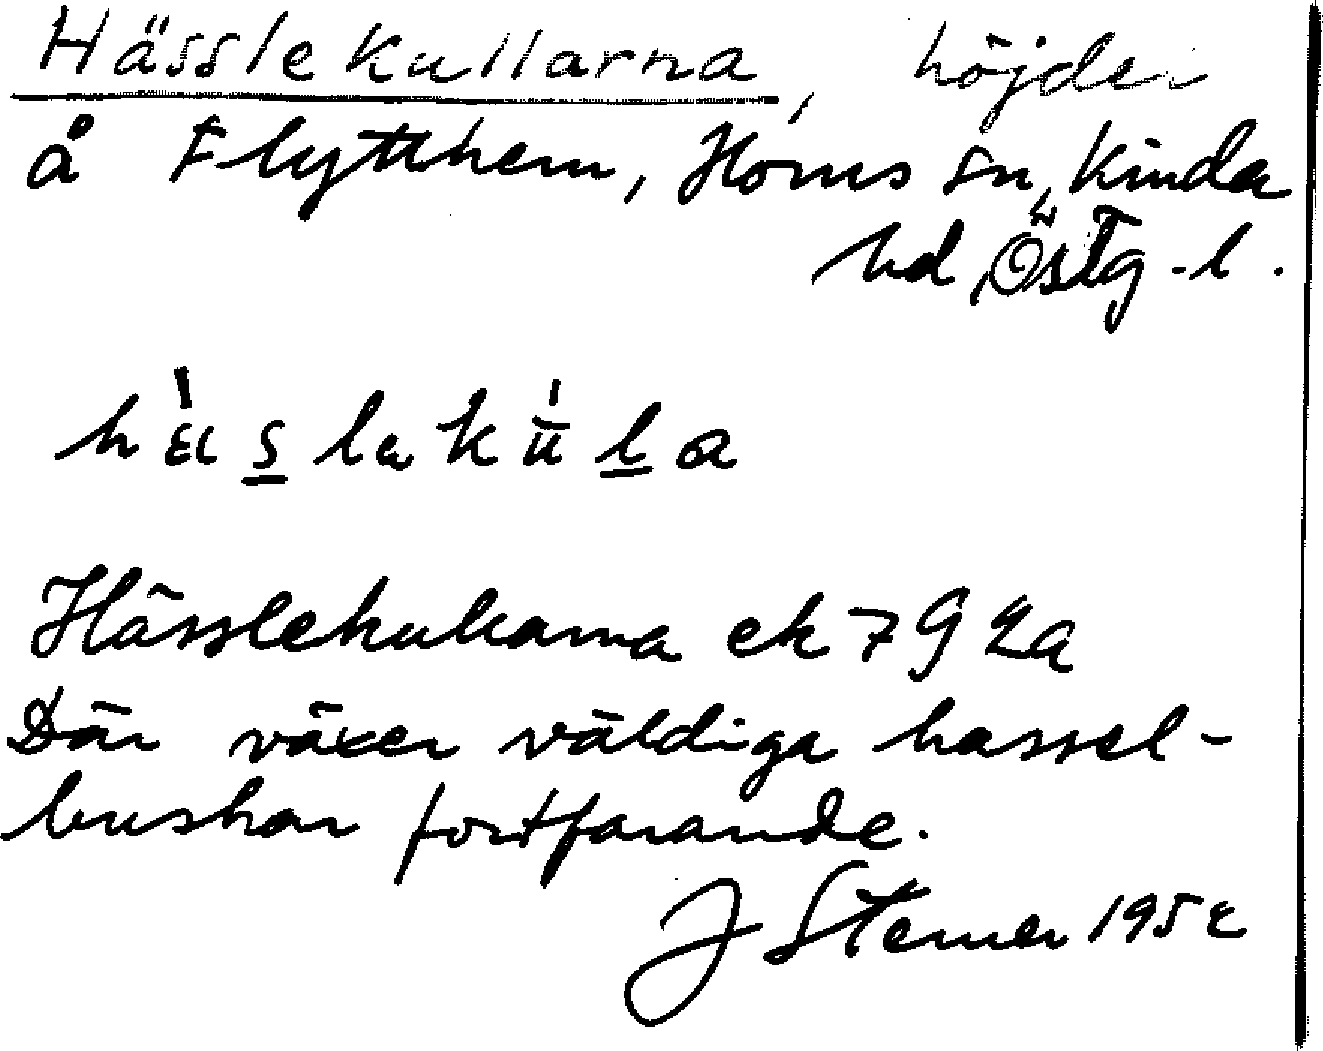 Hässlekullarna, höjder
å Flytthem, Horns sn, Kinda
hd, Östg-l.
Hässlekullarna ek 7 9 2a
Där växer väldiga hassel-
buskar fortfarande.
J Sterner 1952